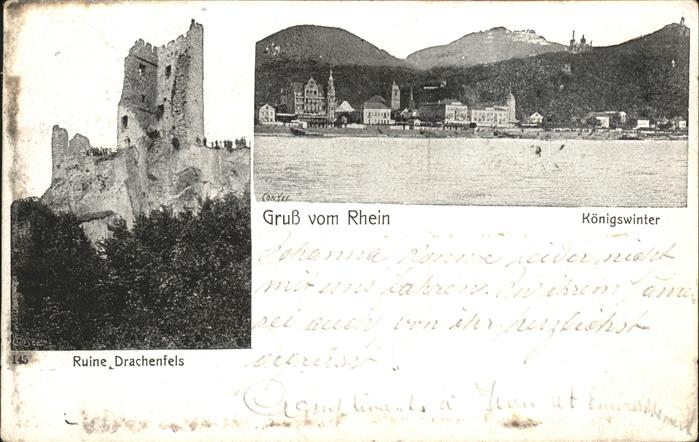 CONSEE
Gruß vom Rhein
Königswinter
Johanna konnte leider nicht
mit uns fahren. Zu ihrem
sei auch von ihr herzlichst
gegrüsst.
145
Ruine Drachenfels
Compliments à Jean et